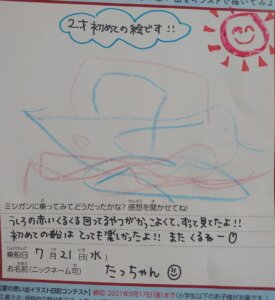 2才初めての絵です!!
ミシガンに乗ってみてどうだったかな？感想を聞かせてね！
うしろの赤いくるくる回ってるやつがかっこよくて、ずっと見てたよ!!
初めての船はとっても楽しかったよ!! また くるねー
乗船日 7月21日(水)
お名前(ニックネーム可) たっちゃん
【夏の思い出イラスト日記コンテスト】締切:2021年9月17日(金)まで